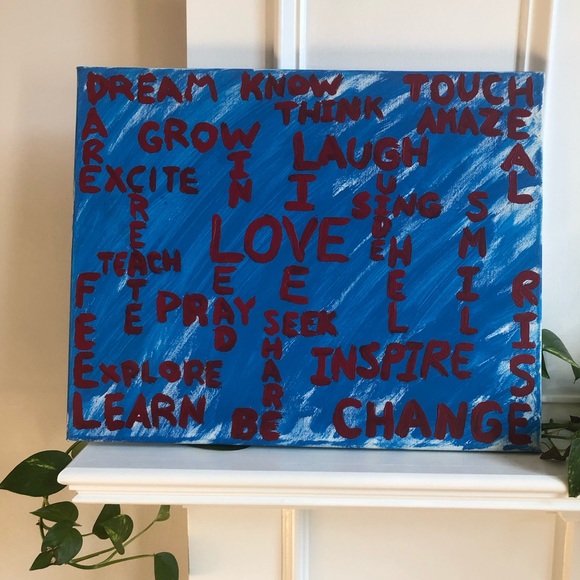 DREAM KNOW TOUCH
THINK AMAZE
DARE
GROW
WIN
LAUGH
LIVE
GUIDE
HEAL
EXCITE
CREATE
SING
SMILE
LOVE
LEAD
HELP
TEACH
FEEL
PRAY
SEEK
SHARE
RISE
INSPIRE
EXPLORE
LEARN BE CHANGE